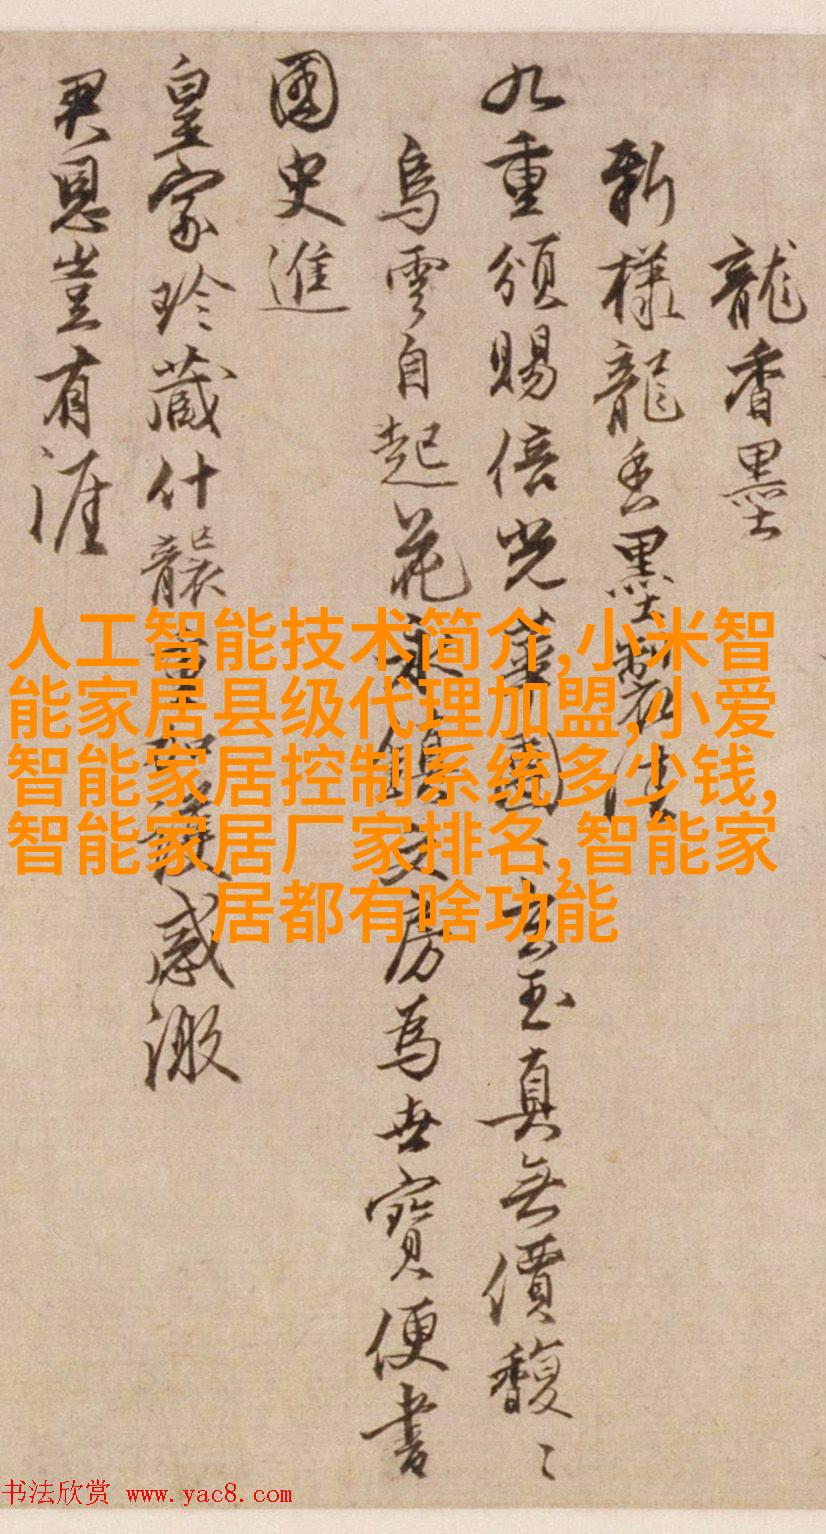 龍香墨
新樣龍香墨製法
九重頒賜倍光華圭玉真無價馥〻
烏雲自起花永鎮文房為世寶便書
國史進
皇家珍藏什襲感激
君恩豈有涯
人工智能技术简介,小米智
能家居县级代理加盟,小爱
智能家居控制系统多少钱,
智能家居厂家排名,智能家
居都有啥功能
书法欣赏 www.yac8.com